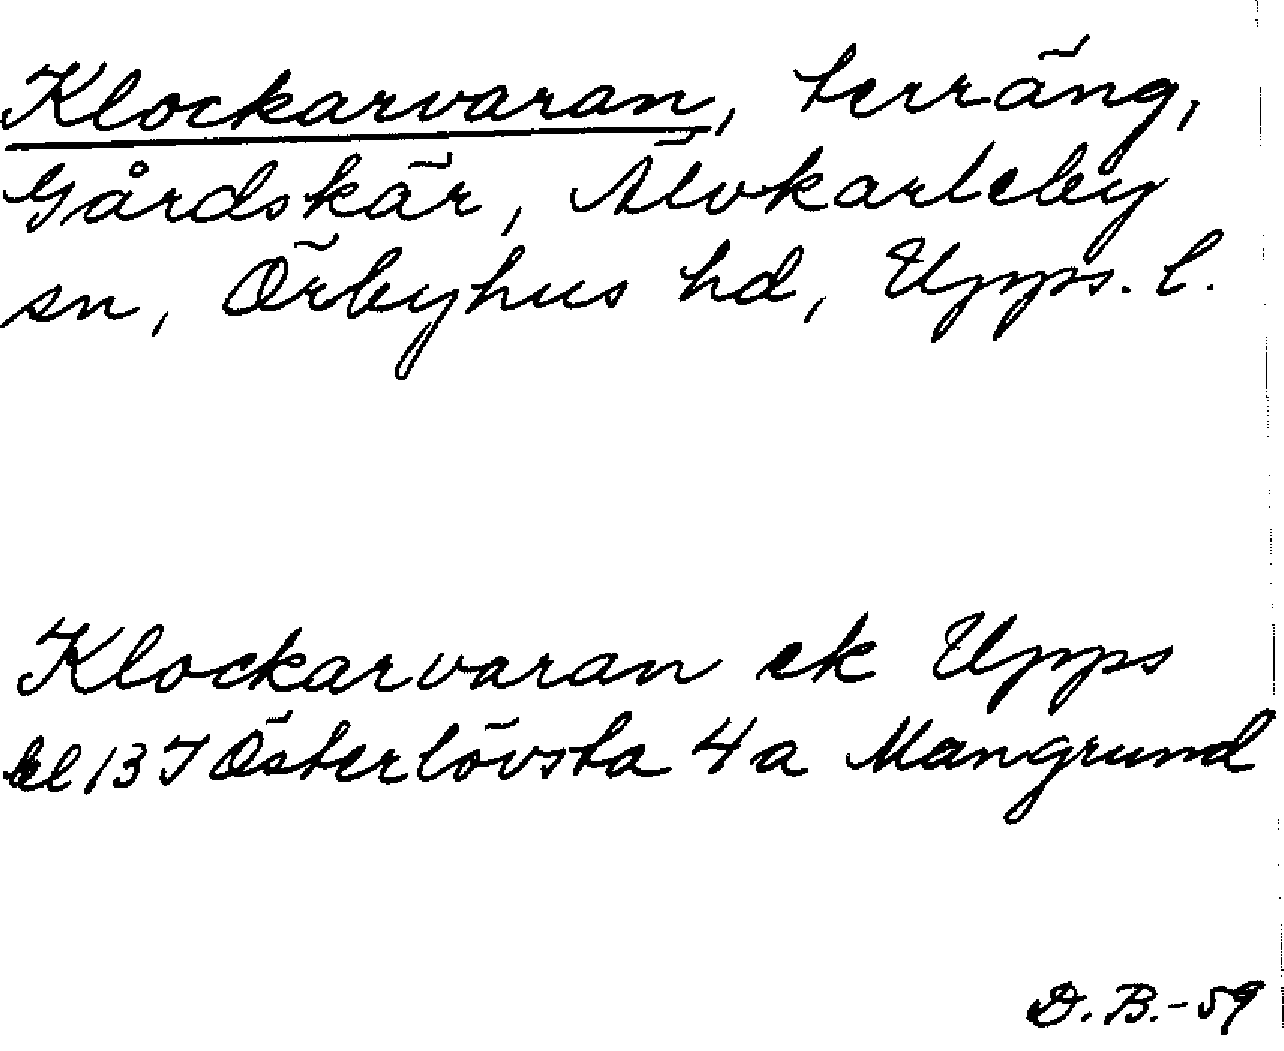 Klockarvaran, terräng,
Gårdskär, Älvkarleby
sn, Örbyhus hd, Upps. l.
Klockarvaran ek Upps
bl 13 I Österlövsta 4 a Mangrund
D. B. - 59